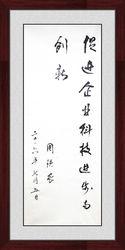 促进企业科技进步与
创新
周铁农
二〇〇六年七月五日